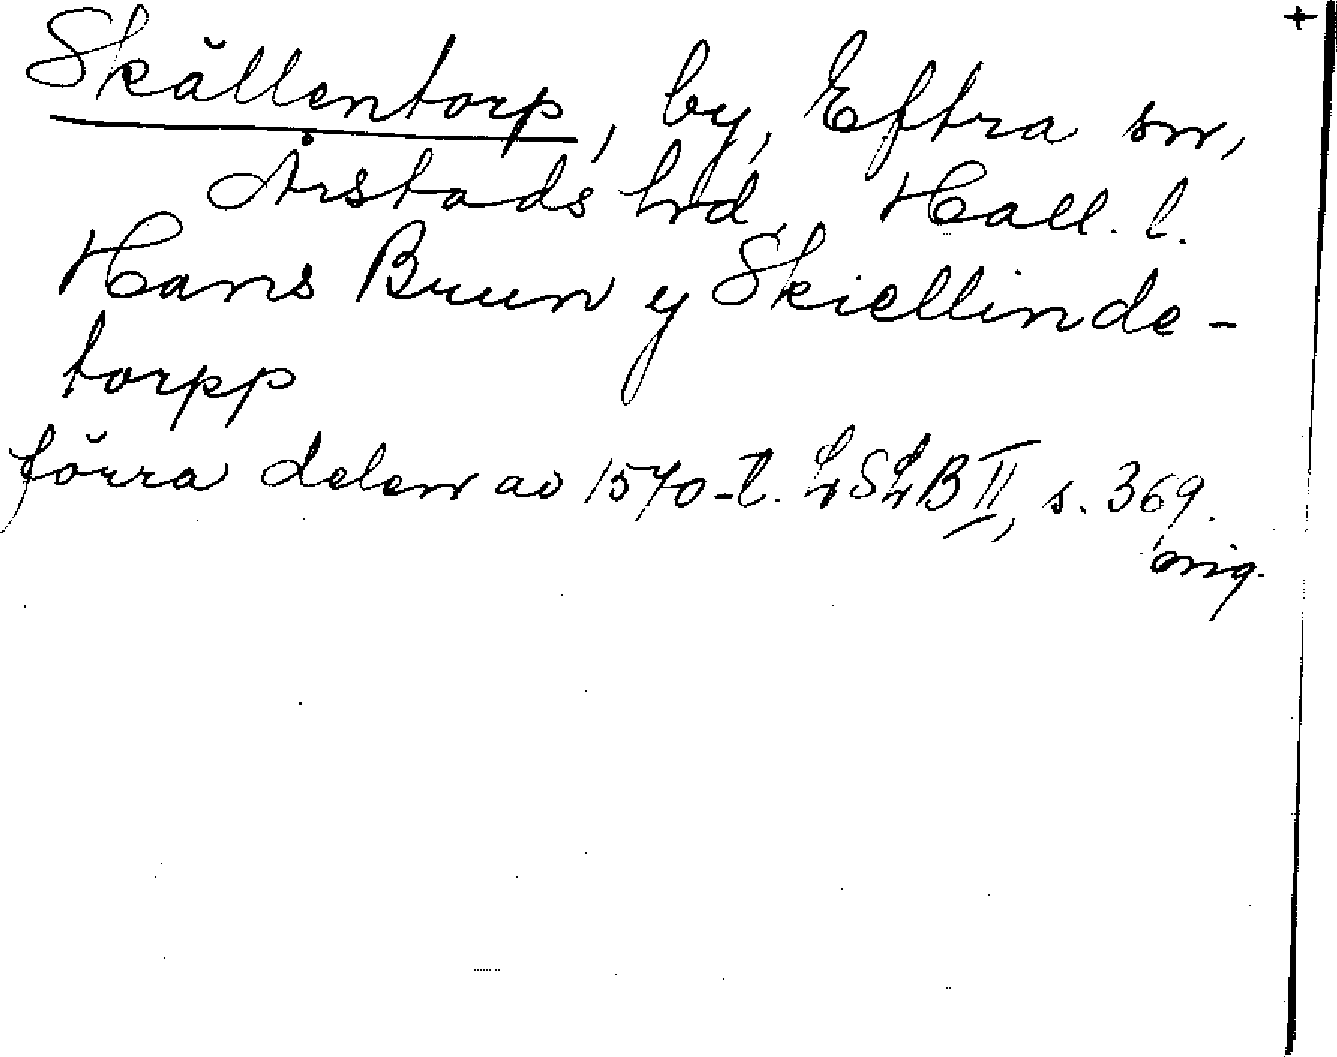 +
Skällentorp, by, Eftra sn,
Årstads hd, Hall. l.
Hans Bruun y Skiellinde-
torpp
förra delen av 1570-t. LSLB II, s. 369.
orig.